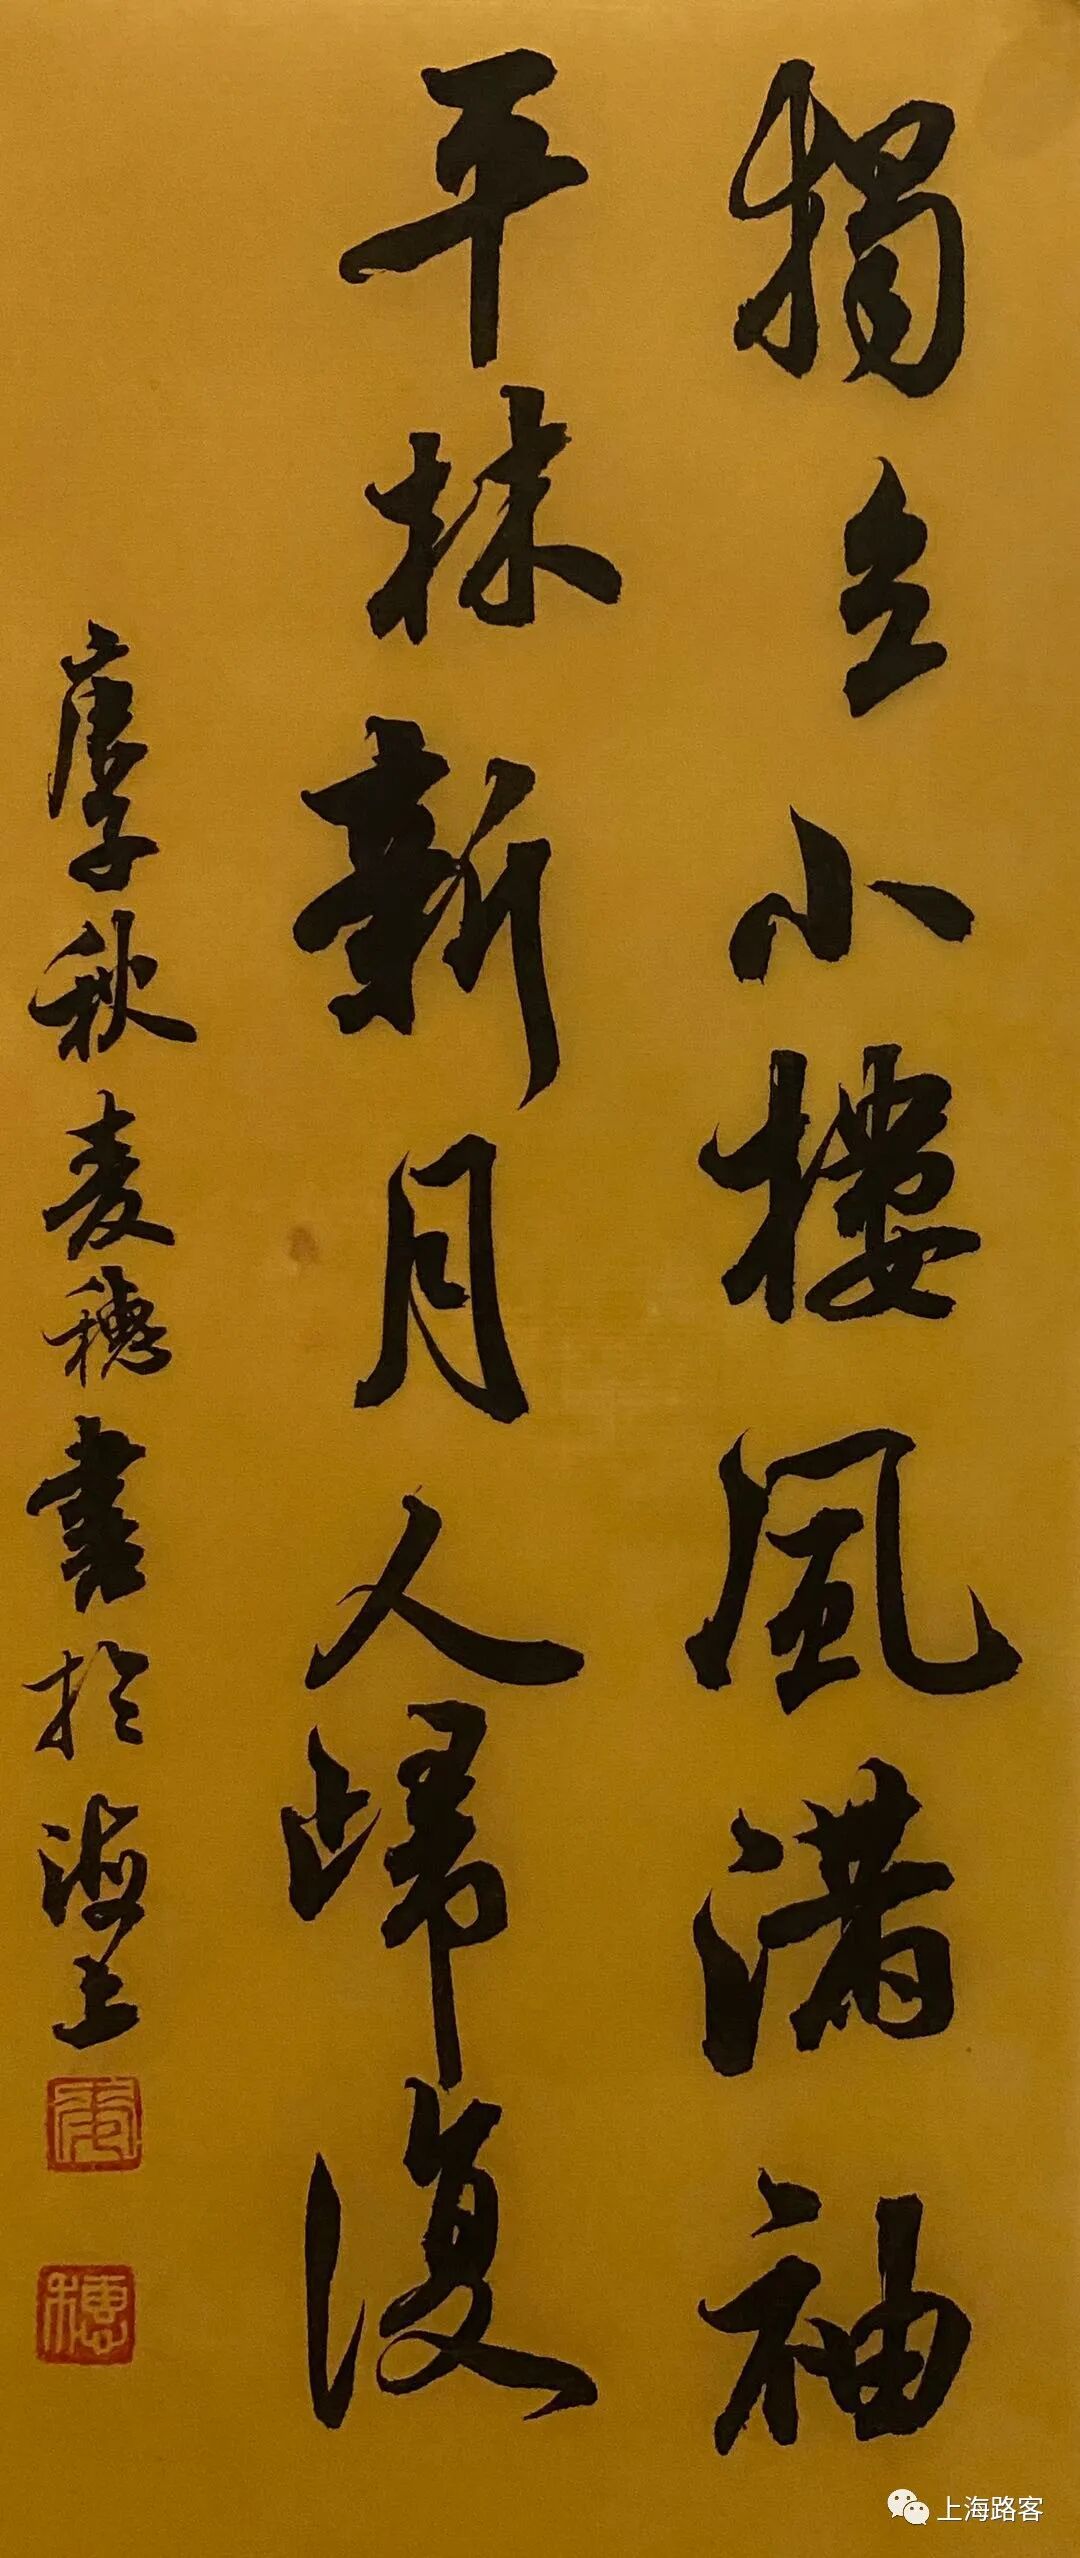 獨立小樓風滿袖
平林新月人歸復
庚子秋麦穗書於海上
穗
上海路客